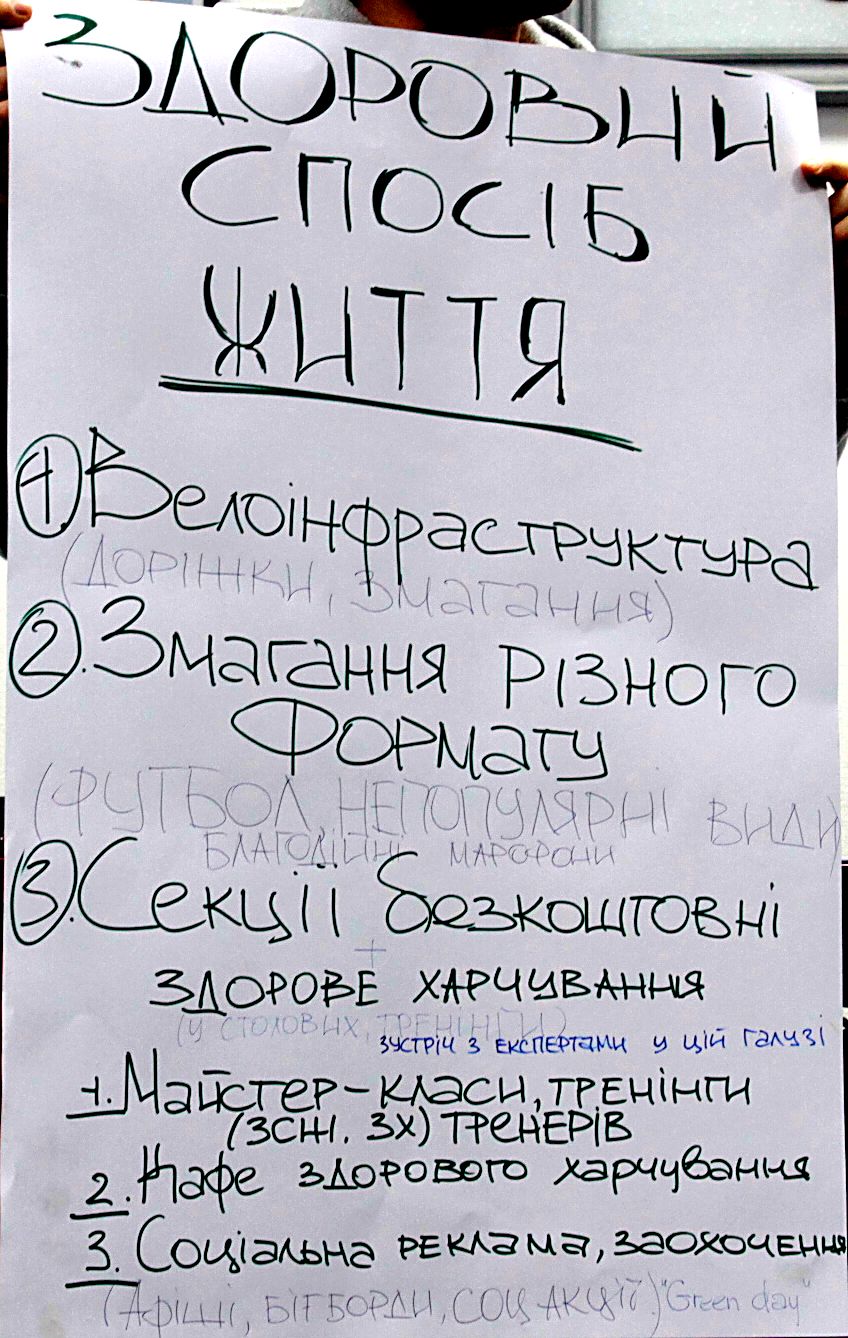 ЗДОРОВИЙ
СПОСІБ
ЖИТТЯ
1 Велоінфраструктура
(ДОРІЖКИ, ЗМАГАННЯ)
2. Змагання РІЗНОГО
ФОРМАТУ
(ФУТБОЛ, НЕПОПУЛЯРНІ ВИДИ)
БЛАГОДІЙНІ МАРОФОНИ
3. Секції безкоштовні
+
ЗДОРОВЕ ХАРЧУВАННЯ
(У СТОЛОВИХ, ТРЕНІНГИ)
ЗУСТРІЧ З ЕКСПЕРТАМИ У ЦІЙ ГАЛУЗІ
1. Майстер-класи, ТРЕНІНГИ
(ЗСЖ. ЗХ) ТРЕНЕРІВ
2. Кафе ЗДОРОВОГО харчування
3. Соціальна РЕКЛАМА, ЗАОХОЧЕННЯ
(Афіші, БІГБОРДИ, СОЦ АКЦІЇ) "Green day"